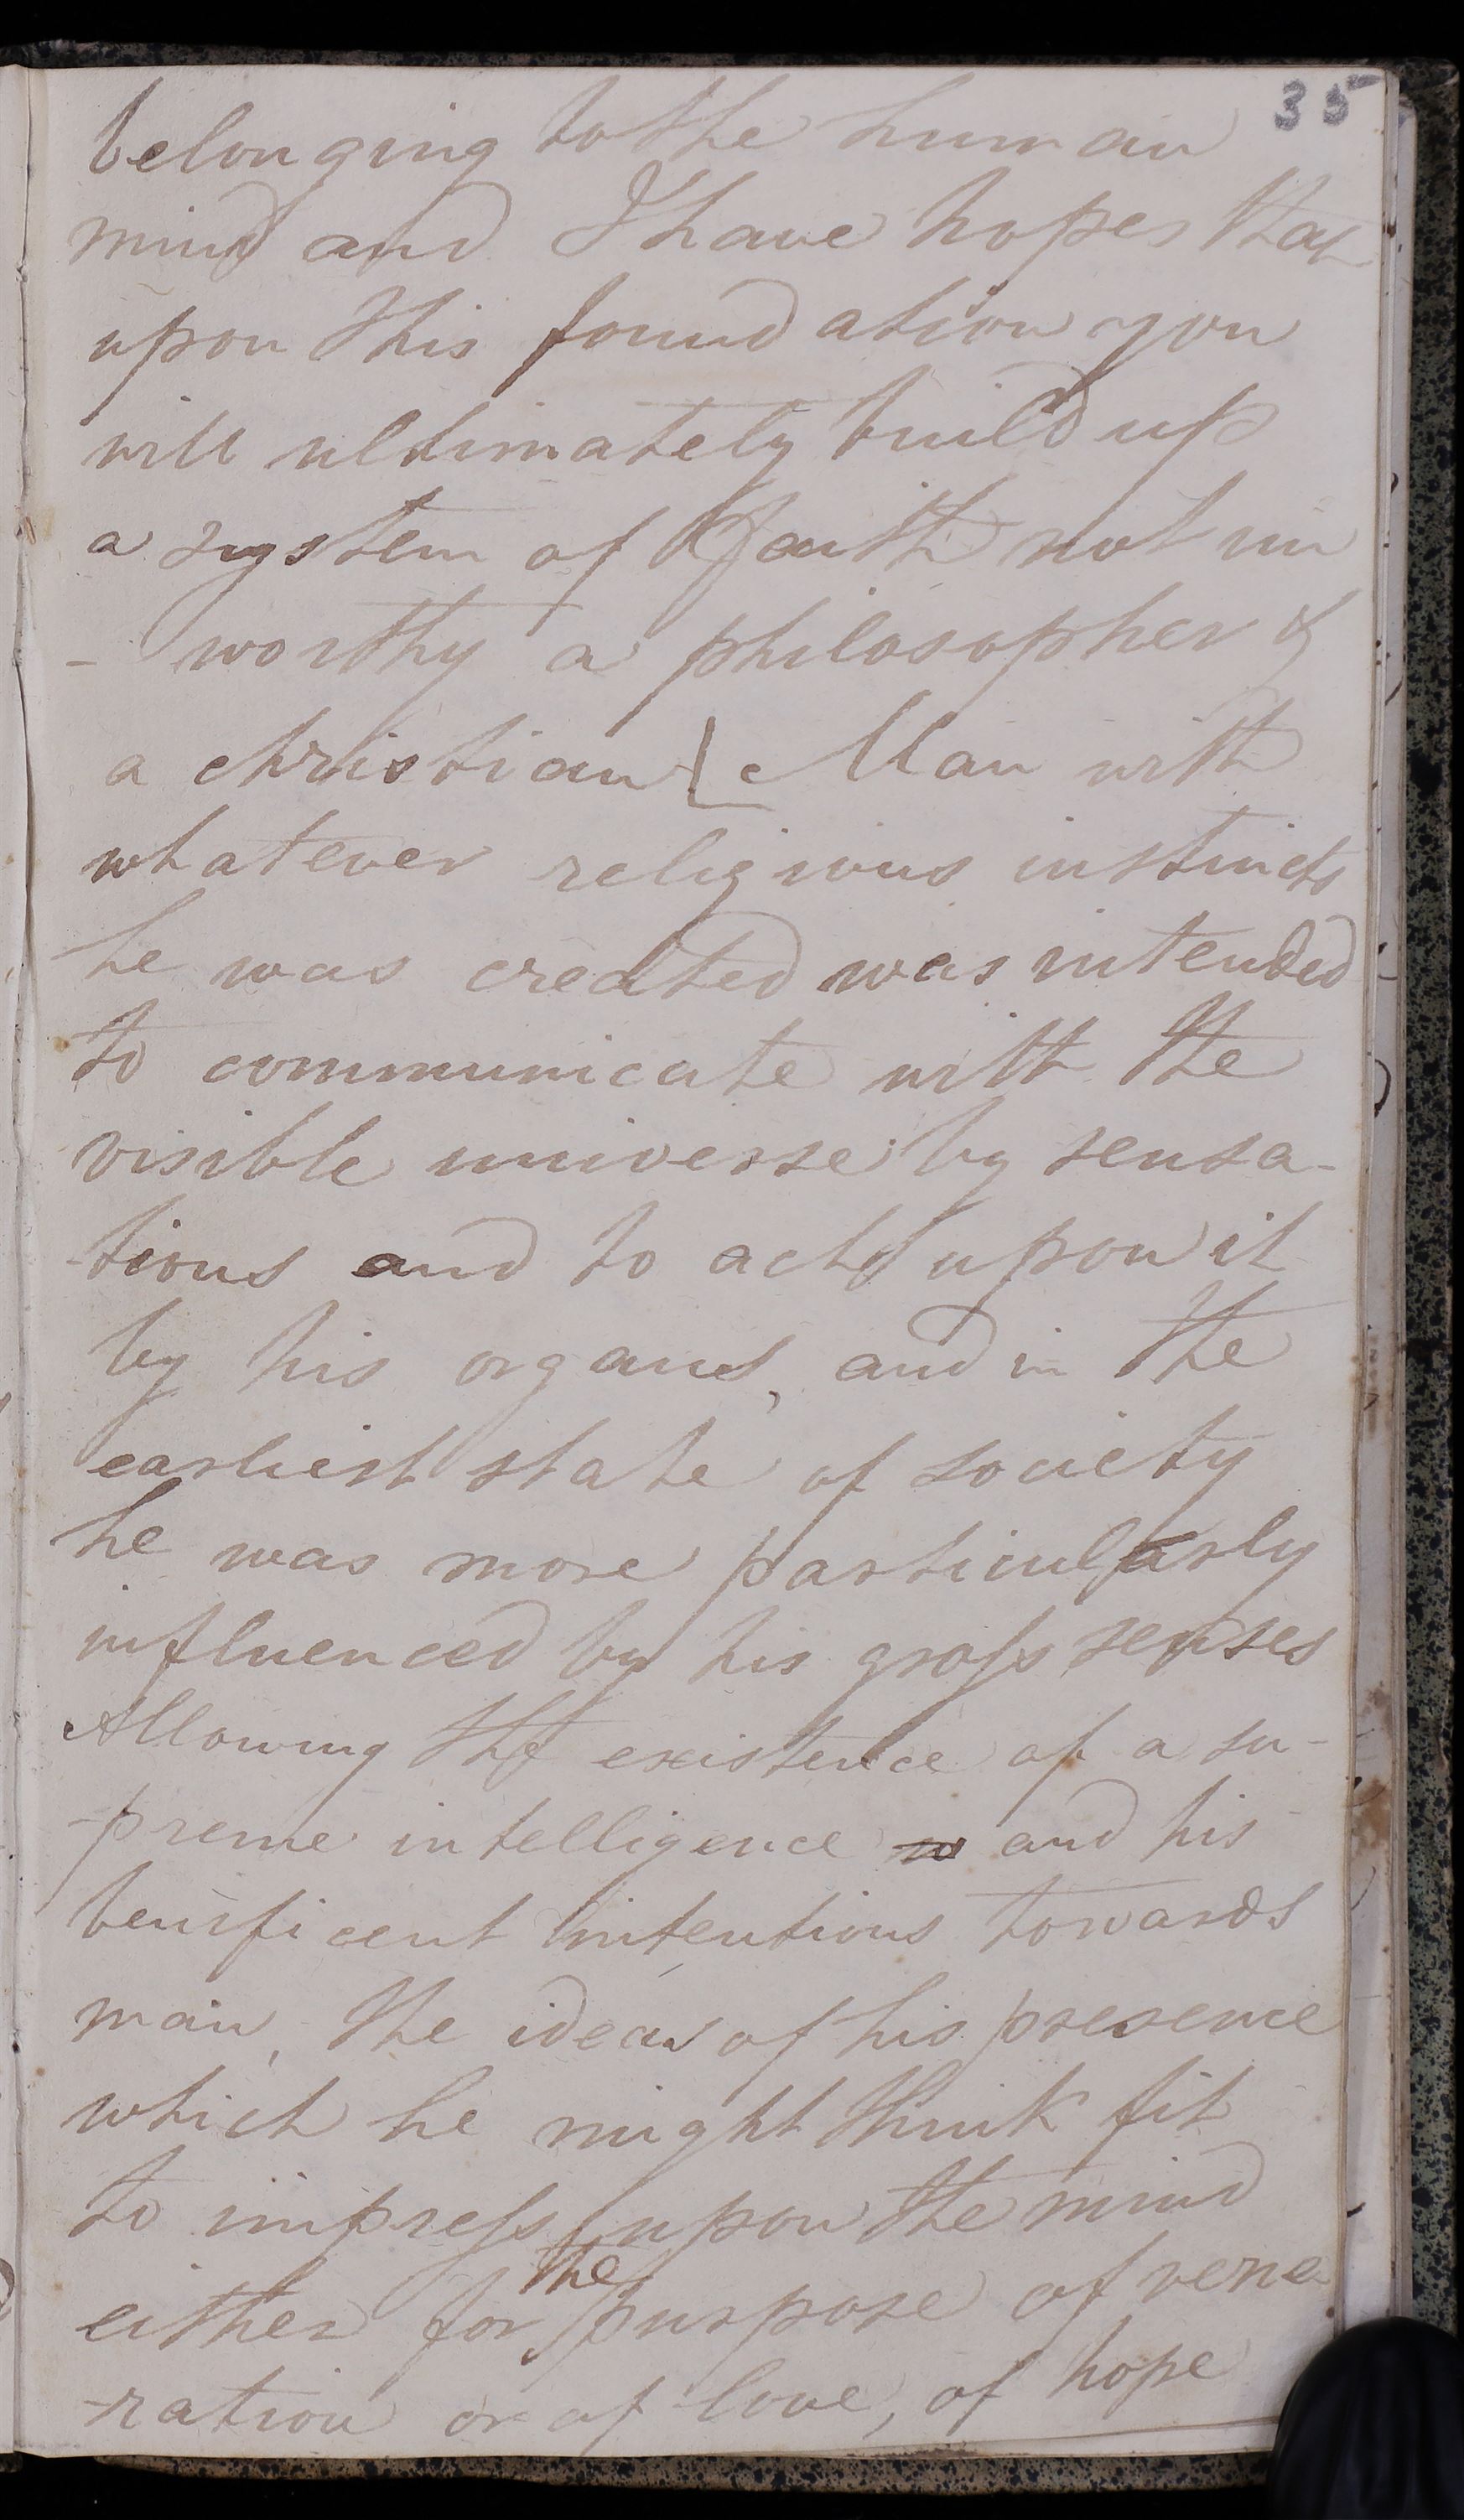 35
belonging to the human
mind and I have hopes that
upon this foundation you
will ultimately build up
a system of faith not un
- worthy a philosopher &
a christian [ Man with
whatever religious instincts
he was created was intended
to communicate with the
visible universe by sensa-
-tions and to act upon it
by his organs, and in the
earliest state of society
he was more particularly
influenced by his gross senses
Allowing the existence of a su-
-preme intelligence and his
beneficent intentions towards
man, the ideas of his presence
which he might think fit
to impress upon the mind
the
either for purpose of vene
-ration or of love, of hope